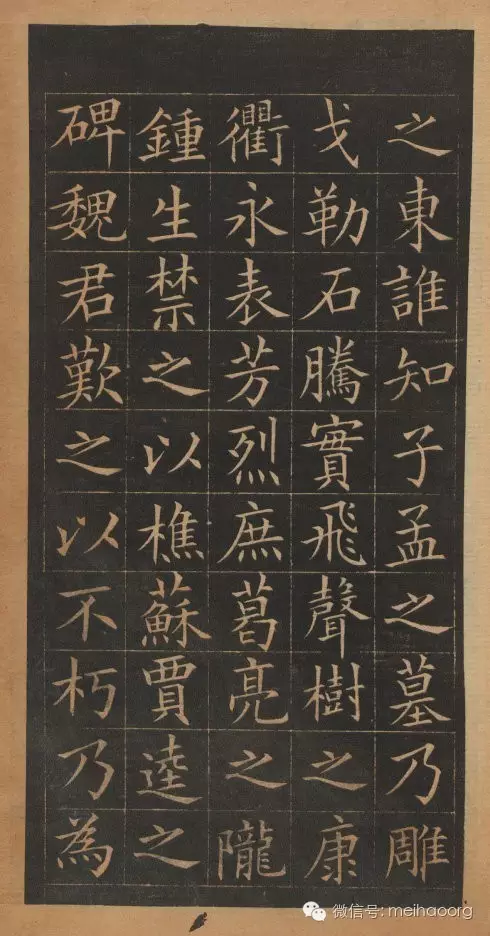 之東誰知子孟之墓乃雕
戈勒石騰實飛聲樹之康
衢永表芳烈庶葛亮之隴
鍾生禁之以樵蘇賈逵之
碑魏君歎之以不朽乃為
微信号: meihaoorg